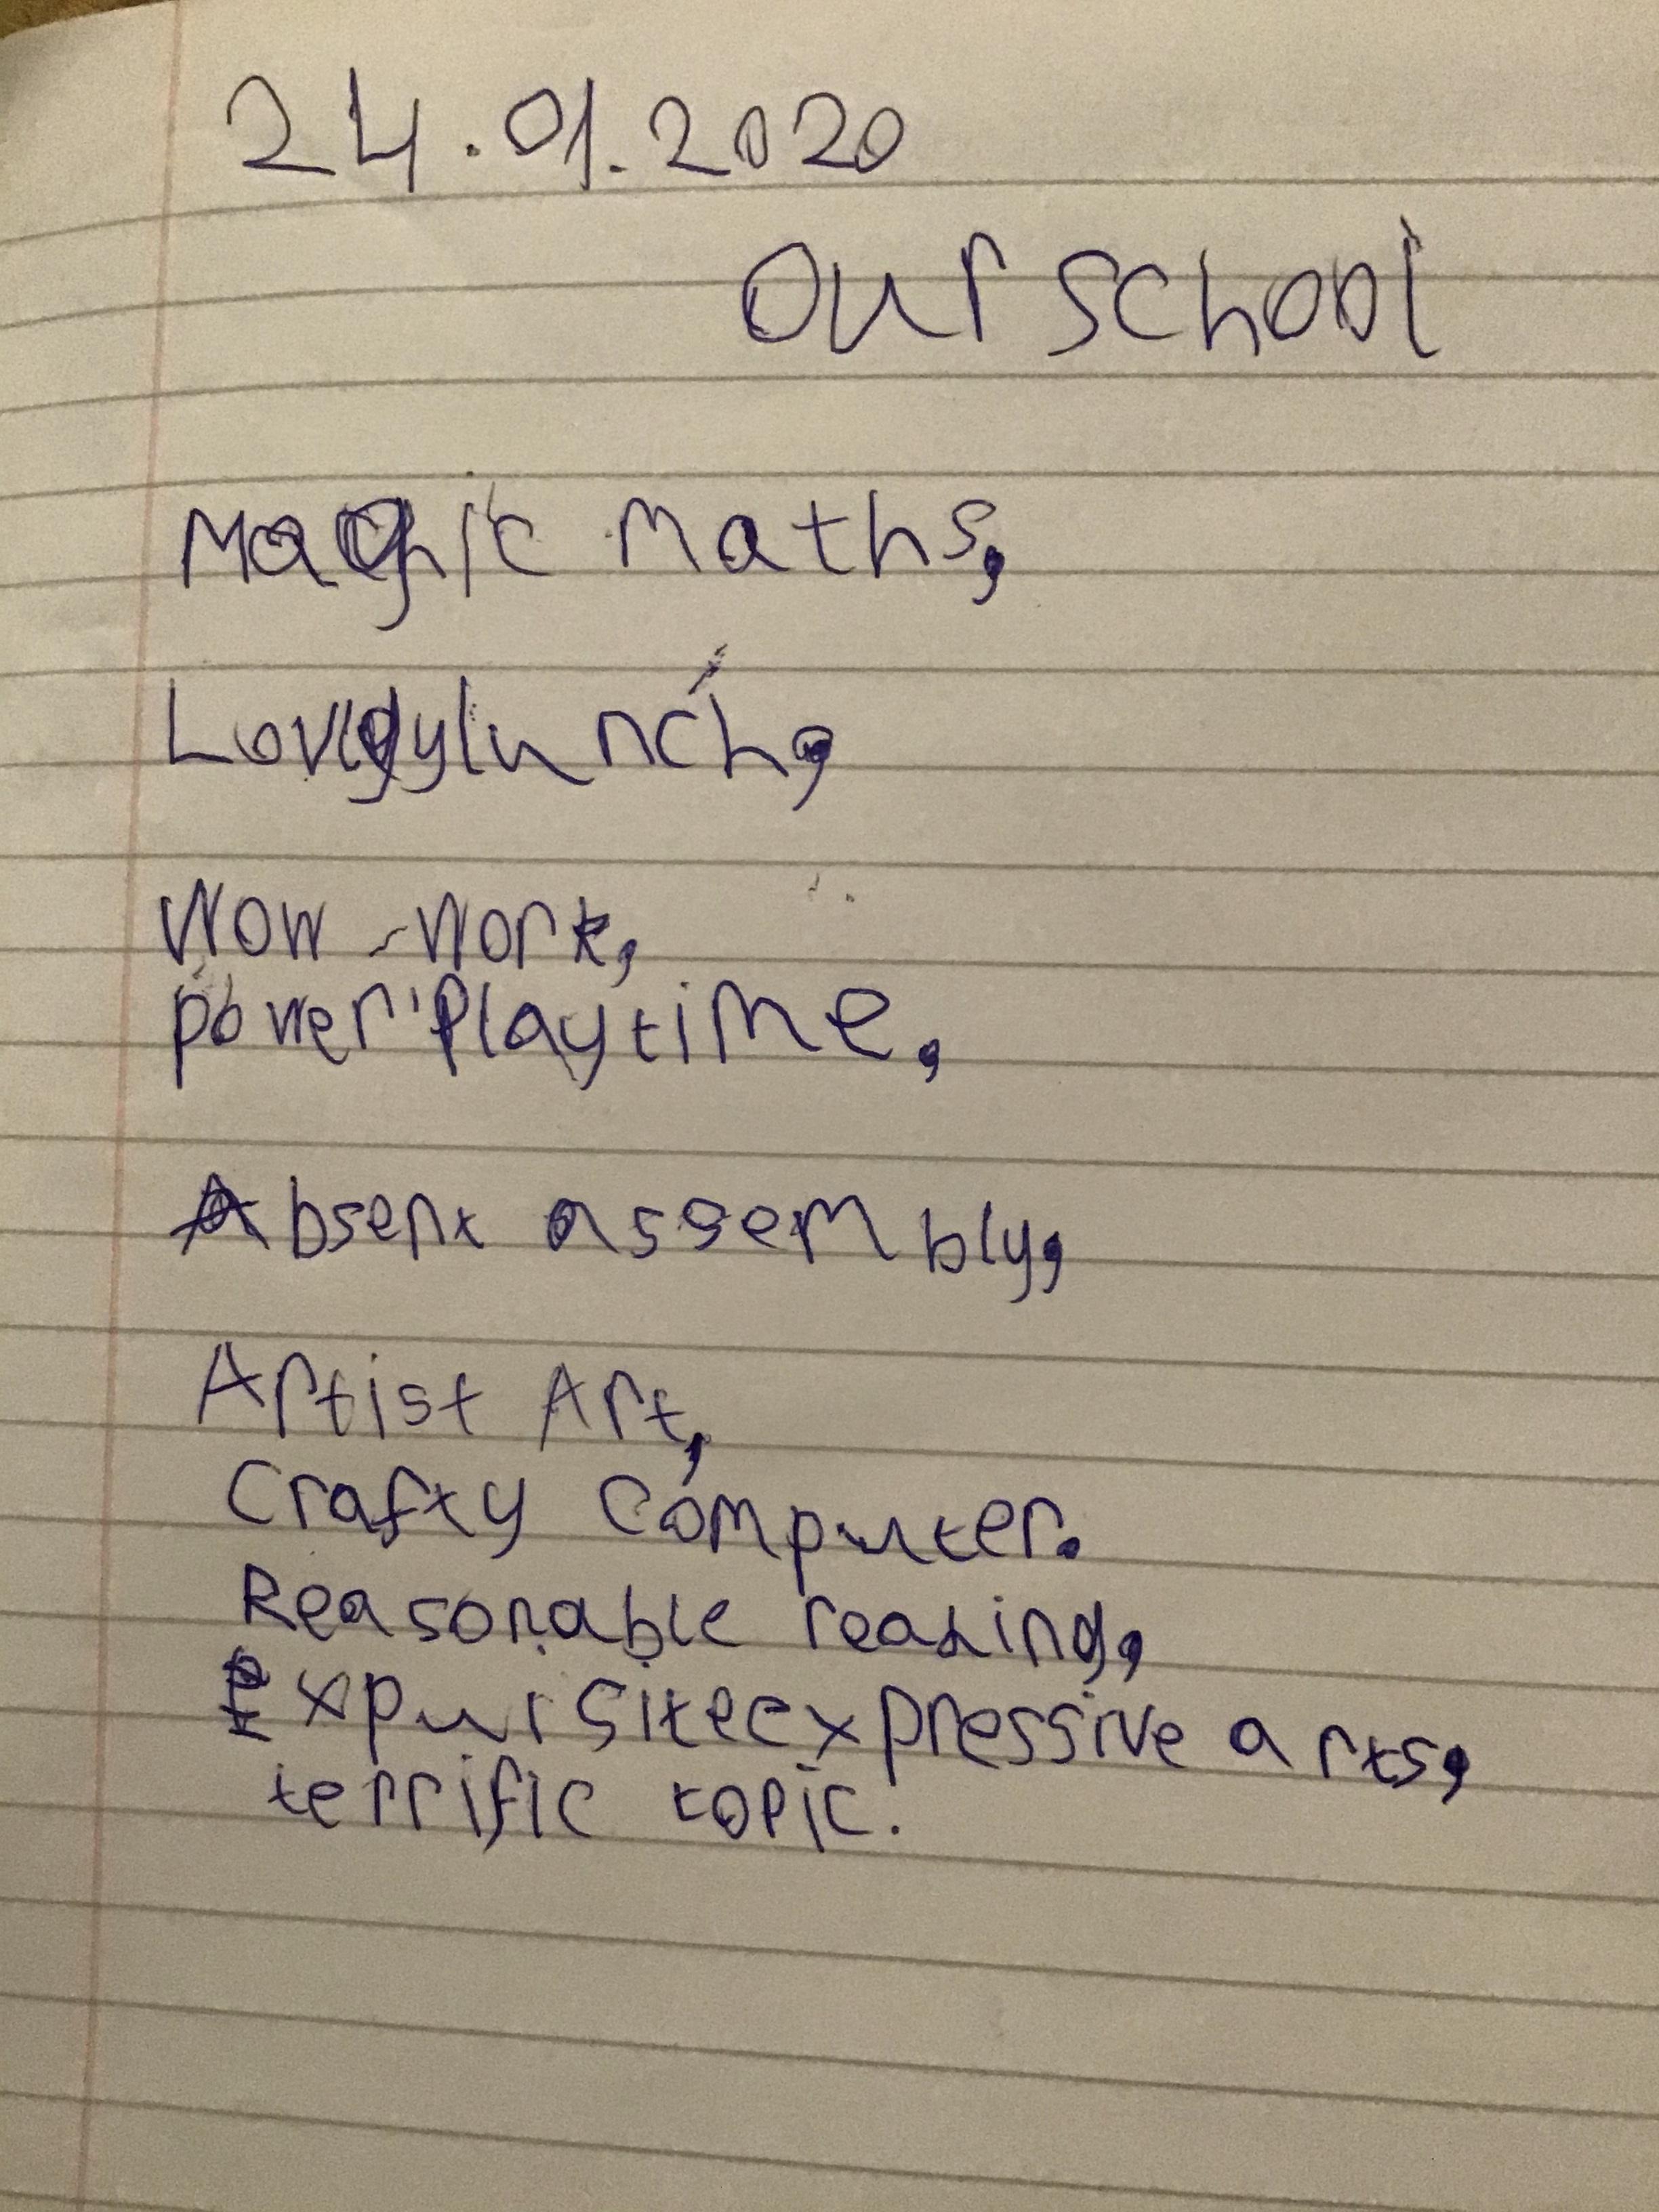 24.01.2020
Our school
Magic maths,
Lovely lunch,
Wow work,
power playtime,
Absent assembly,
Artist Art,
Crafty computer.
Reasonable reading,
Expuisite expressive arts,
terrific topic.